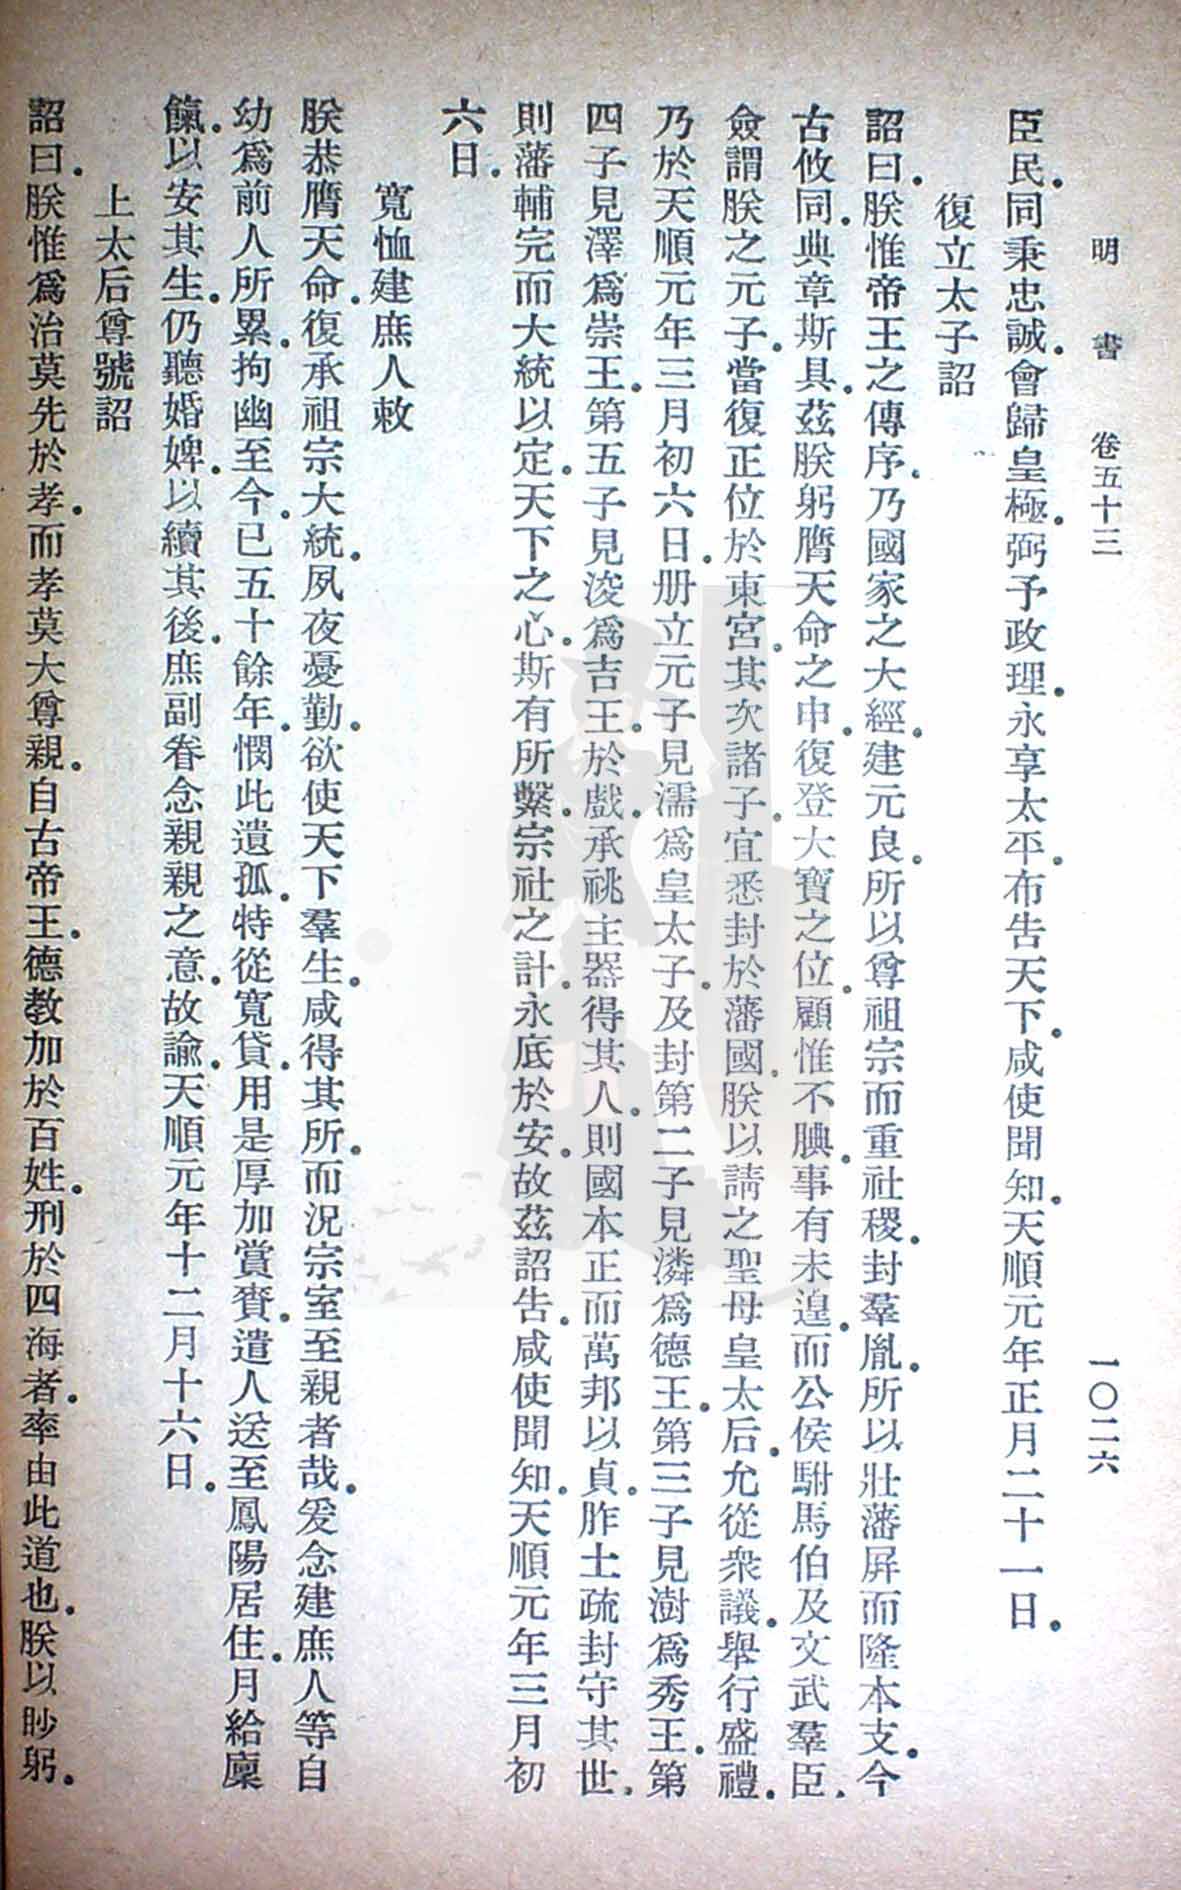 明書 卷五十三 一〇二六
臣民。同秉忠誠。會歸皇極。弼予政理。永享太平。布告天下。咸使聞知。天順元年正月二十一日。
復立太子詔
詔曰。朕惟帝王之傳序。乃國家之大經。建元良。所以尊祖宗而重社稷。封羣胤。所以壯藩屏而隆本支。今
古攸同。典章斯具。茲朕躬膺天命之申。復登大寶之位。顧惟不腆。事有未遑。而公侯駙馬伯及文武羣臣。
僉謂朕之元子。當復正位於東宮。其次諸子。宜悉封於藩國。朕以請之聖母皇太后。允從衆議。舉行盛禮。
乃於天順元年三月初六日。册立元子見濡爲皇太子。及封第二子見潾爲德王。第三子見澍爲秀王。第
四子見澤爲崇王。第五子見浚爲吉王。於戲。承祧主器得其人。則國本正而萬邦以貞。胙土疏封守其世。
則藩輔完而大統以定。天下之心。斯有所繫。宗社之計。永底於安。故茲詔告。咸使聞知。天順元年三月初
六日。
寬恤建庶人敕
朕恭膺天命。復承祖宗大統。夙夜憂勤。欲使天下羣生。咸得其所。而況宗室至親者哉。爰念建庶人等自
幼爲前人所累。拘幽至今。已五十餘年。憫此遺孤。特從寬貸。用是厚加賞賚。遣人送至鳳陽居住。月給廩
餼。以安其生。仍聽婚婢。以續其後。庶副眷念親親之意。故諭。天順元年十二月十六日。
上太后尊號詔
詔曰。朕惟爲治莫先於孝。而孝莫大尊親。自古帝王。德教加於百姓。刑於四海者。率由此道也。朕以眇躬。